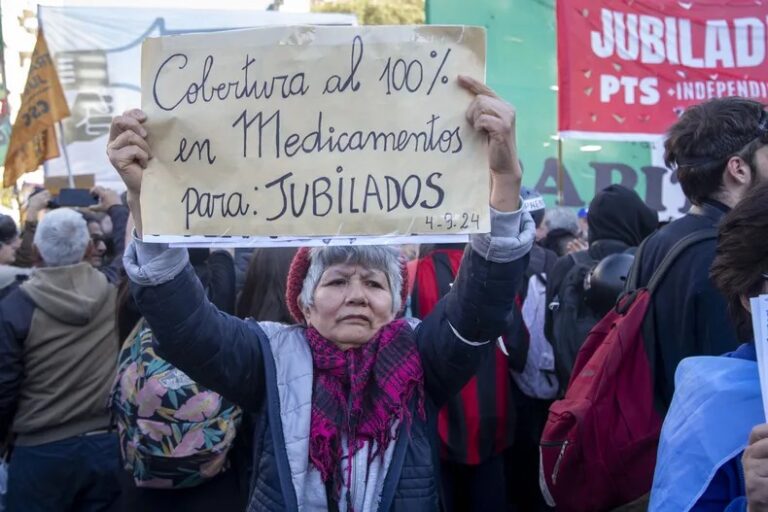 Cobertura al 100%
en Medicamentos
para: JUBILADOS
4-9-24
JUBILAD
PTS +INDEPEND